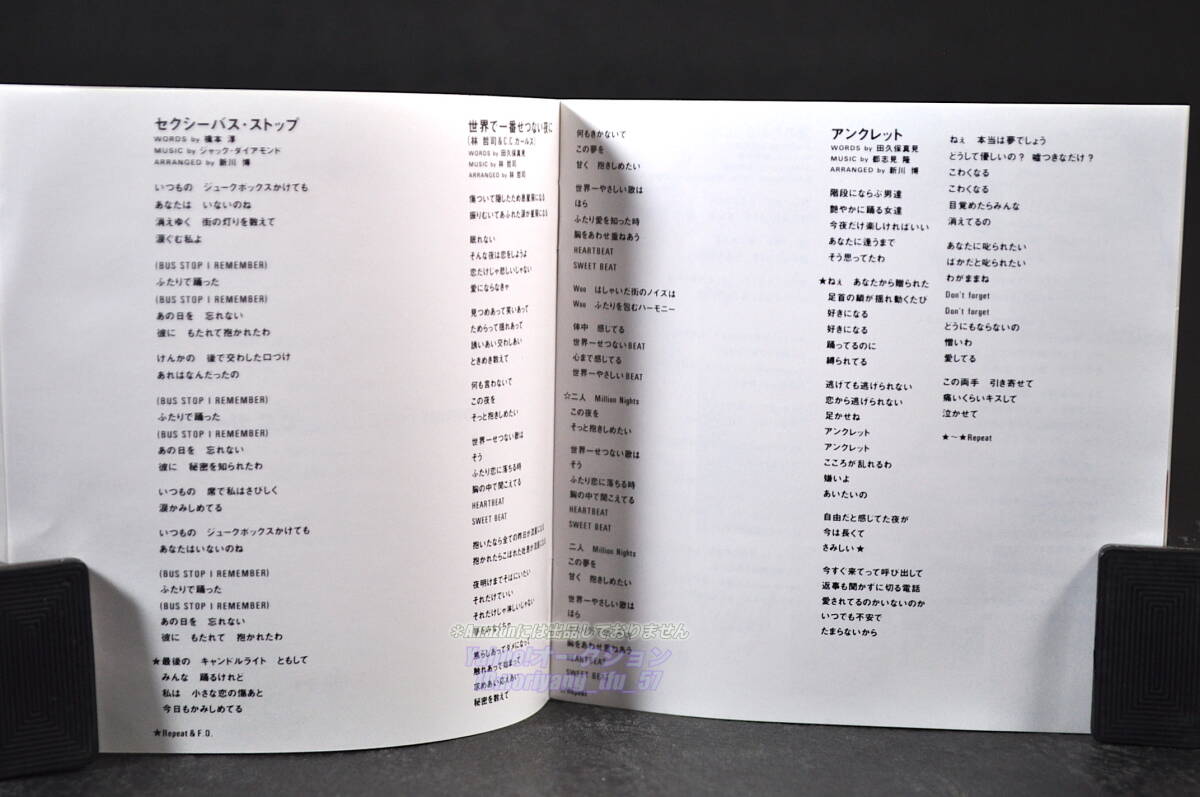 セクシーバス・ストップ
WORDS by 橋本 淳
MUSIC by ジャック・ダイアモンド
ARRANGED by 新川 博
いつもの ジュークボックスかけても
あなたは いないのね
消えゆく 街の灯りを数えて
涙ぐむ私よ
(BUS STOP I REMEMBER)
ふたりで踊った
(BUS STOP I REMEMBER)
あの日を 忘れない
彼に もたれて抱かれたわ
けんかの 後で交わした口つけ
あれはなんだったの
(BUS STOP I REMEMBER)
ふたりで踊った
(BUS STOP I REMEMBER)
あの日を 忘れない
彼に 秘密を知られたわ
いつもの 席で私はさびしく
涙かみしめてる
いつもの ジュークボックスかけても
あなたはいないのね
(BUS STOP I REMEMBER)
ふたりで踊った
(BUS STOP I REMEMBER)
あの日を 忘れない
彼に もたれて 抱かれたわ
★最後の キャンドルライト ともして
みんな 踊るけれど
私は 小さな恋の傷あと
今日もかみしめてる
★Repeat & F.O.
世界で一番せつない夜に
(林 哲司&C.C.ガールズ)
WORDS by 田久保真見
MUSIC by 林 哲司
ARRANGED by 林 哲司
傷ついて隠したため息星座になる
振りむいてあふれた涙が星座になる
眠れない
そんな夜は恋をしようよ
恋だけじゃ悲しいじゃない
愛にならなきゃ
見つめあって笑いあって
ためらって揺れあって
誘いあい交わしあい
ときめき教えて
何も言わないで
この夜を
そっと抱きしめたい
世界一せつない歌は
そう
ふたり恋に落ちる時
胸の中で聞こえてる
HEARTBEAT
SWEET BEAT
抱いたなら全ての昨日が流星になる
抱かれたらこぼれた吐息が流星になる
夜明けまでそばにいたい
それだけでいい
それだけじゃ淋しいじゃない
焦らしあってダメになって
触れあって始まって
求めあい応えあい
秘密を教えて
何もきかないで
この夢を
甘く 抱きしめたい
世界一やさしい歌は
ほら
ふたり愛を知った時
胸をあわせ重ねあう
HEARTBEAT
SWEET BEAT
Woo はしゃいだ街のノイズは
Woo ふたりを包むハーモニー
体中 感じてる
世界一せつないBEAT
心まで感じてる
世界一やさしいBEAT
☆二人 Million Nights
この夜を
そっと抱きしめたい
世界一せつない歌は
そう
ふたり恋に落ちる時
胸の中で聞こえてる
HEARTBEAT
SWEET BEAT
二人 Million Nights
この夢を
甘く 抱きしめたい
世界一やさしい歌は
ほら
胸をあわせ重ねあう
HEARTBEAT
SWEET BEAT
Repeat
アンクレット
WORDS by 田久保真見
MUSIC by 都志見 隆
ARRANGED by 新川 博
階段にならぶ男達
艶やかに踊る女達
今夜だけ楽しければいい
あなたに逢うまで
そう思ってたわ
★ねぇ あなたから贈られた
足首の鎖が揺れ動くたび
好きになる
好きになる
踊ってるのに
縛られてる
逃げても逃げられない
恋から逃げられない
足かせね
アンクレット
アンクレット
こころが乱れるわ
嫌いよ
あいたいの
自由だと感じてた夜が
今は長くて
さみしい★
今すぐ来てって呼び出して
返事も聞かずに切る電話
愛されてるのかいないのか
いつでも不安で
たまらないから
ねぇ 本当は夢でしょう
どうして優しいの? 嘘つきなだけ?
こわくなる
こわくなる
目覚めたらみんな
消えてるの
あなたに叱られたい
ばかだと叱られたい
わがままね
Don't forget
Don't forget
どうにもならないの
憎いわ
愛してる
この両手 引き寄せて
痛いくらいキスして
泣かせて
★〜★Repeat
※Amazonには出品しておりません
Yahoo!オークション